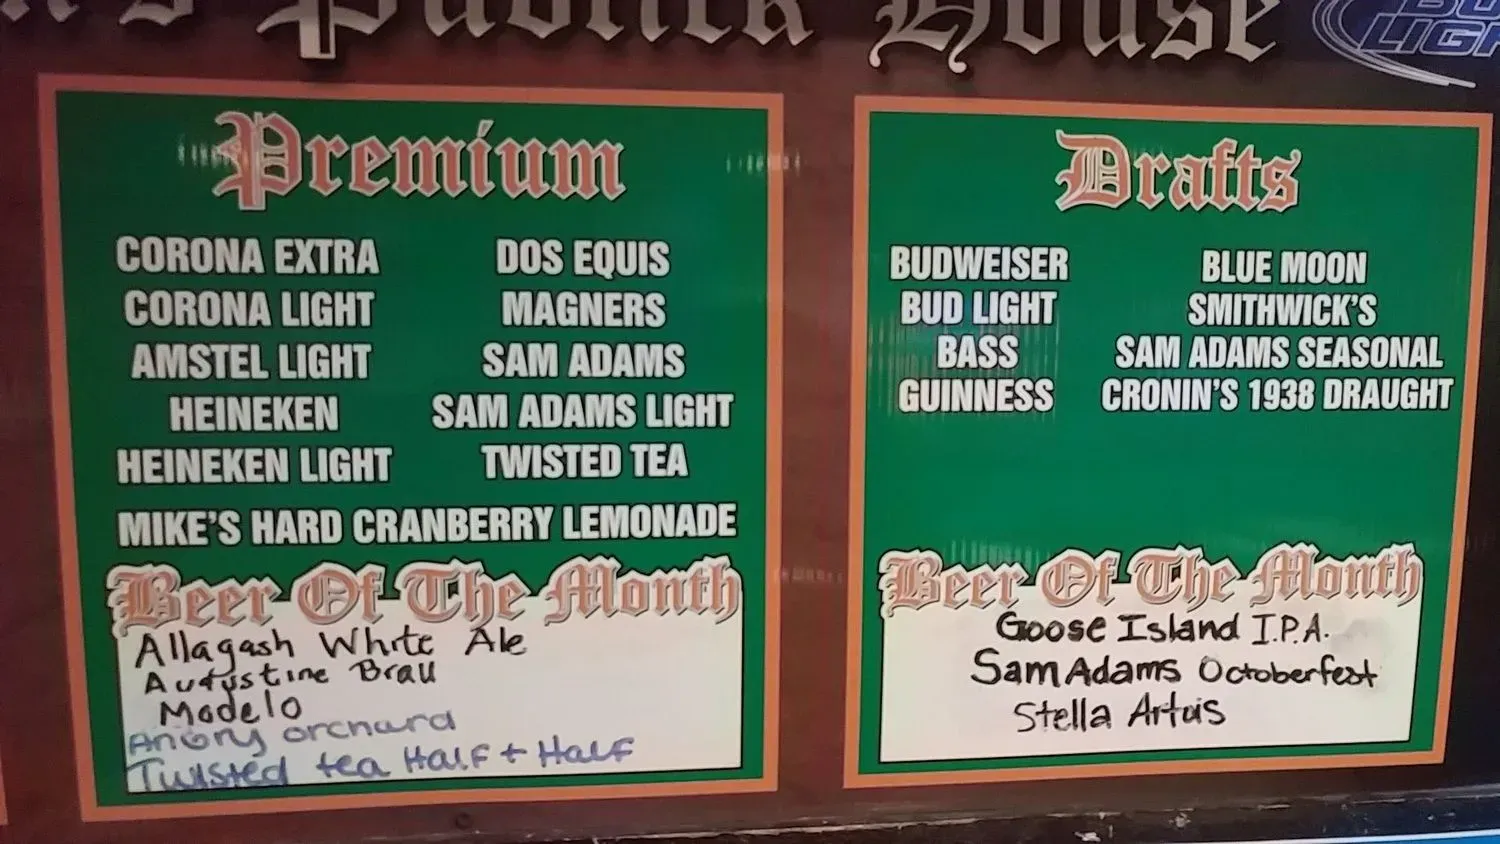 's Publick House
BUD
LIGHT
Premium
CORONA EXTRA
CORONA LIGHT
AMSTEL LIGHT
HEINEKEN
HEINEKEN LIGHT
DOS EQUIS
MAGNERS
SAM ADAMS
SAM ADAMS LIGHT
TWISTED TEA
MIKE'S HARD CRANBERRY LEMONADE
Beer Of The Month
Allagash White Ale
Augustine Brau
Modelo
Angry orchard
Twisted tea Half + Half
Drafts
BUDWEISER
BUD LIGHT
BASS
GUINNESS
BLUE MOON
SMITHWICK'S
SAM ADAMS SEASONAL
CRONIN'S 1938 DRAUGHT
Beer Of The Month
Goose Island I.P.A.
Sam Adams Octoberfest
Stella Artois